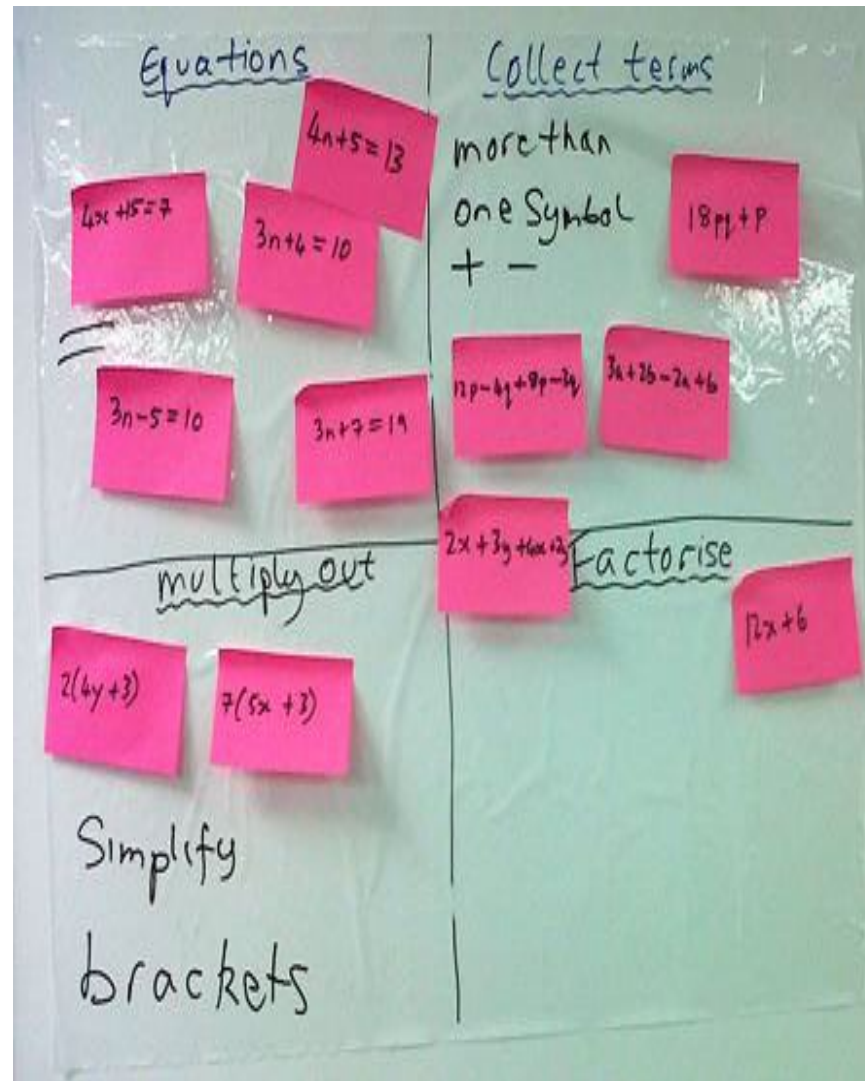 Equations
4n+5=13
4x+15=7
3n+4=10
=
3n-5=10
3n+7=19
Collect terms
more than
one Symbol
+ -
18pq+p
12p-4q+8p-3q
3a+2b-2a+b
2x+3y+4x+2y
multiply out
2(4y+3)
7(5x+3)
Simplify
brackets
Factorise
12x+6